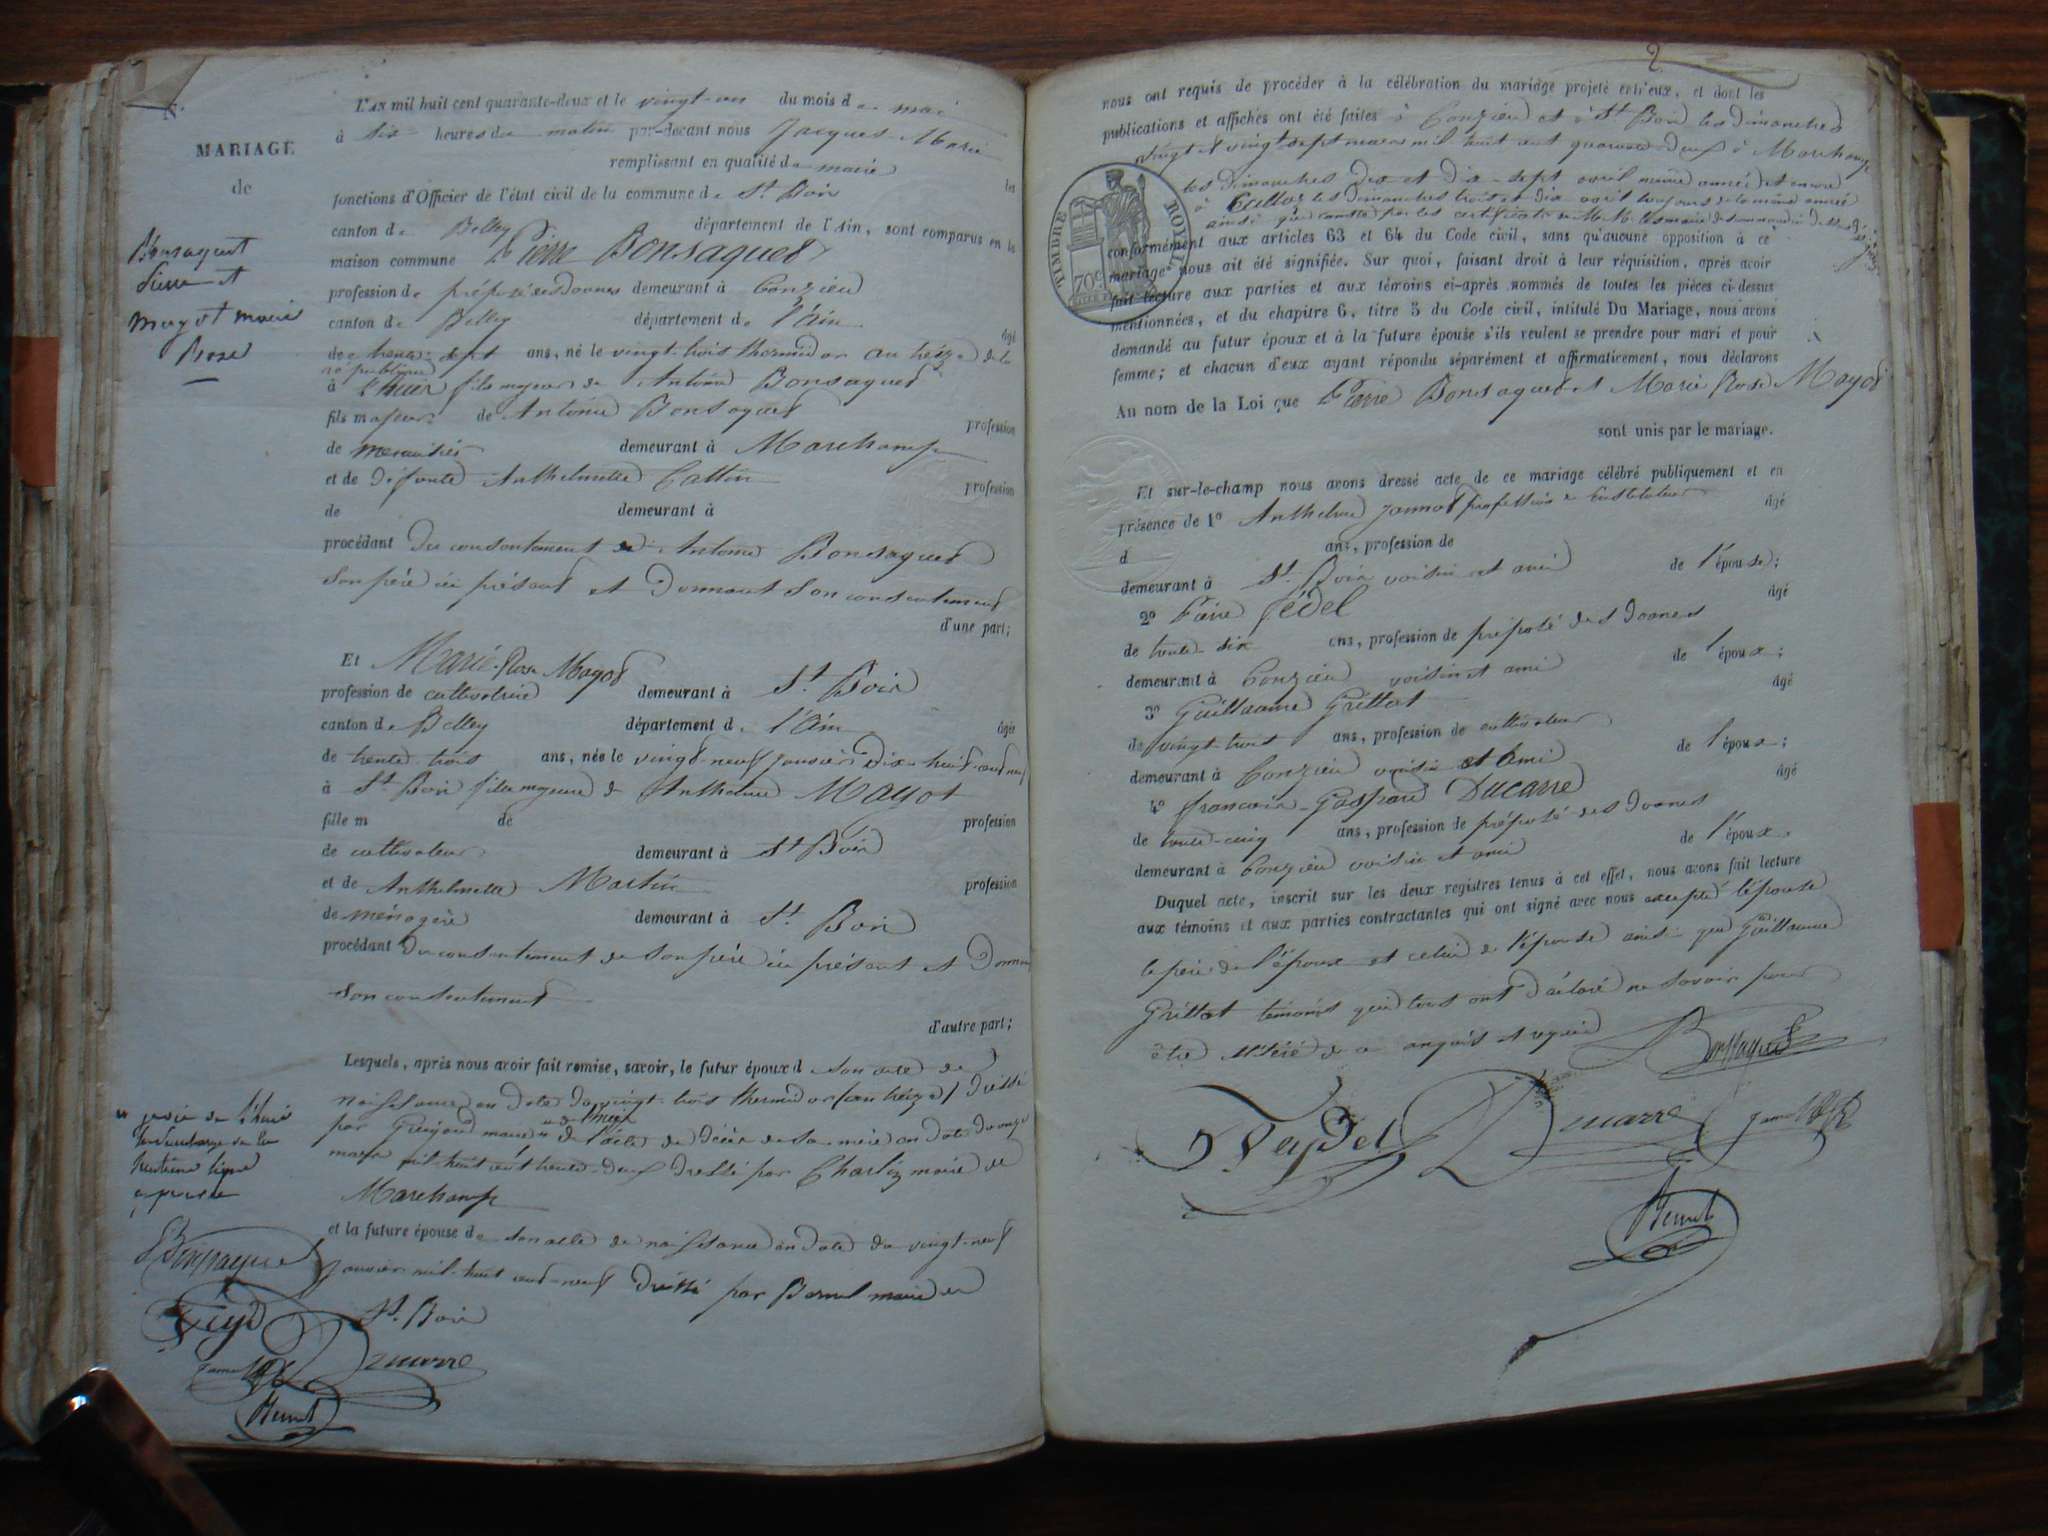 N.
MARIAGE
de
Bonsaquet
Pierre et
Mayot marie
Rose
L'AN mil huit cent quarante-deux et le vingt-un du mois de mai
à six heures du matin par-devant nous Jacques-Marie
remplissant en qualité de maire les
fonctions d'Officier de l'état civil de la commune de St. Boin
canton de Belley département de l'Ain, sont comparus en la
maison commune Pierre Bonsaquet
profession de préposé des Doanes demeurant à Conzieu
canton de Belley département de l'ain âgé
de trente-sept ans, né le vingt-trois thermidor an treize de la
république
à fils majeur de Antoine Bonsaquet
fils majeur de Antoine Bonsaquet profession
de demeurant à Marchamp
et de défunte Anthelmette Cattin profession
de demeurant à
procédant du consentement de Antoine Bonsaquet
son père ici présent et Donnant son consentement
d'une part;
Et Marie-Rose Mayot
profession de cultivatrice demeurant à St. Boin
canton de Belley département de l'ain âgée
de trente-trois ans, née le vingt-neuf janvier dix-huit-cent neuf
à St. Boin fille majeure de Anthelme Mayot
fille m de profession
de cultivateur demeurant à St Boin
et de Anthelmette Martin profession
de ménagère demeurant à St. Boin
procédant du consentement de son père ici présent et Donnant
son consentement
d'autre part;
Lesquels, après nous avoir fait remise, savoir, le futur époux d son acte de
naissance en date du vingt-trois thermidor an treize dressé
par maire de l'acte de décès de sa mère en date du onze
mars mil huit cent trente-deux dressé par Charlin maire de
Marchamp
et la future épouse de son acte de naissance en date du vingt-neuf
janvier mil-huit cent-neuf dressé par Bernel maire de
St. Boin
Bonsaquet
Feyd
Ducarre
2
nous ont requis de procéder à la célébration du mariage projeté entr'eux, et dont les
publications et affiches ont été faites à Conzieu et à St. Boin les dimanches
vingt et vingt-sept mars mil huit cent quarante-deux à Marchamp
les dimanches dix et dix-sept avril même année et encore
à les dimanches trois et dix avril toujours de la même année
ainsi que conste par les certificats de MM. les maires
TIMBRE ROYAL
70c
conformément aux articles 63 et 64 du Code civil, sans qu'aucune opposition à ce
mariage nous ait été signifiée. Sur quoi, faisant droit à leur réquisition, après avoir
fait lecture aux parties et aux témoins ci-après nommés de toutes les pièces ci-dessus
mentionnées, et du chapitre 6, titre 5 du Code civil, intitulé Du Mariage, nous avons
demandé au futur époux et à la future épouse s'ils veulent se prendre pour mari et pour
femme; et chacun d'eux ayant répondu séparément et affirmativement, nous déclarons
Au nom de la Loi que Pierre Bonsaquet et Marie Rose Mayot
sont unis par le mariage.
Et sur-le-champ nous avons dressé acte de ce mariage célébré publiquement et en
présence de 1º Anthelme Jannot profession de instituteur âgé
d ans, profession de
demeurant à St. Boin voisin et ami de l'épouse;
2º Pierre Fédel âgé
de trente-six ans, profession de préposé des Doanes
demeurant à Conzieu voisin et ami de l'époux;
3º Guillaume Grillat âgé
de vingt-trois ans, profession de cultivateur
demeurant à Conzieu voisin et ami de l'époux;
4º françois-Gaspard Ducarre âgé
de trente-cinq ans, profession de préposé des Doanes
demeurant à Conzieu voisin et ami de l'époux.
Duquel acte, inscrit sur les deux registres tenus à cet effet, nous avons fait lecture
aux témoins et aux parties contractantes qui ont signé avec nous excepté l'épouse
le père de l'époux et celui de l'épouse ainsi que Guillaume
Grillat témoins qui tous ont déclaré ne savoir pour
être de ce enquis et requis
Bonsaquet
Feydel Ducarre
Bernel